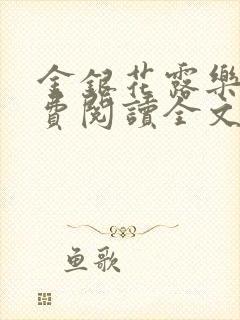 金銀花露樂
費閱讀全文
鱼歌